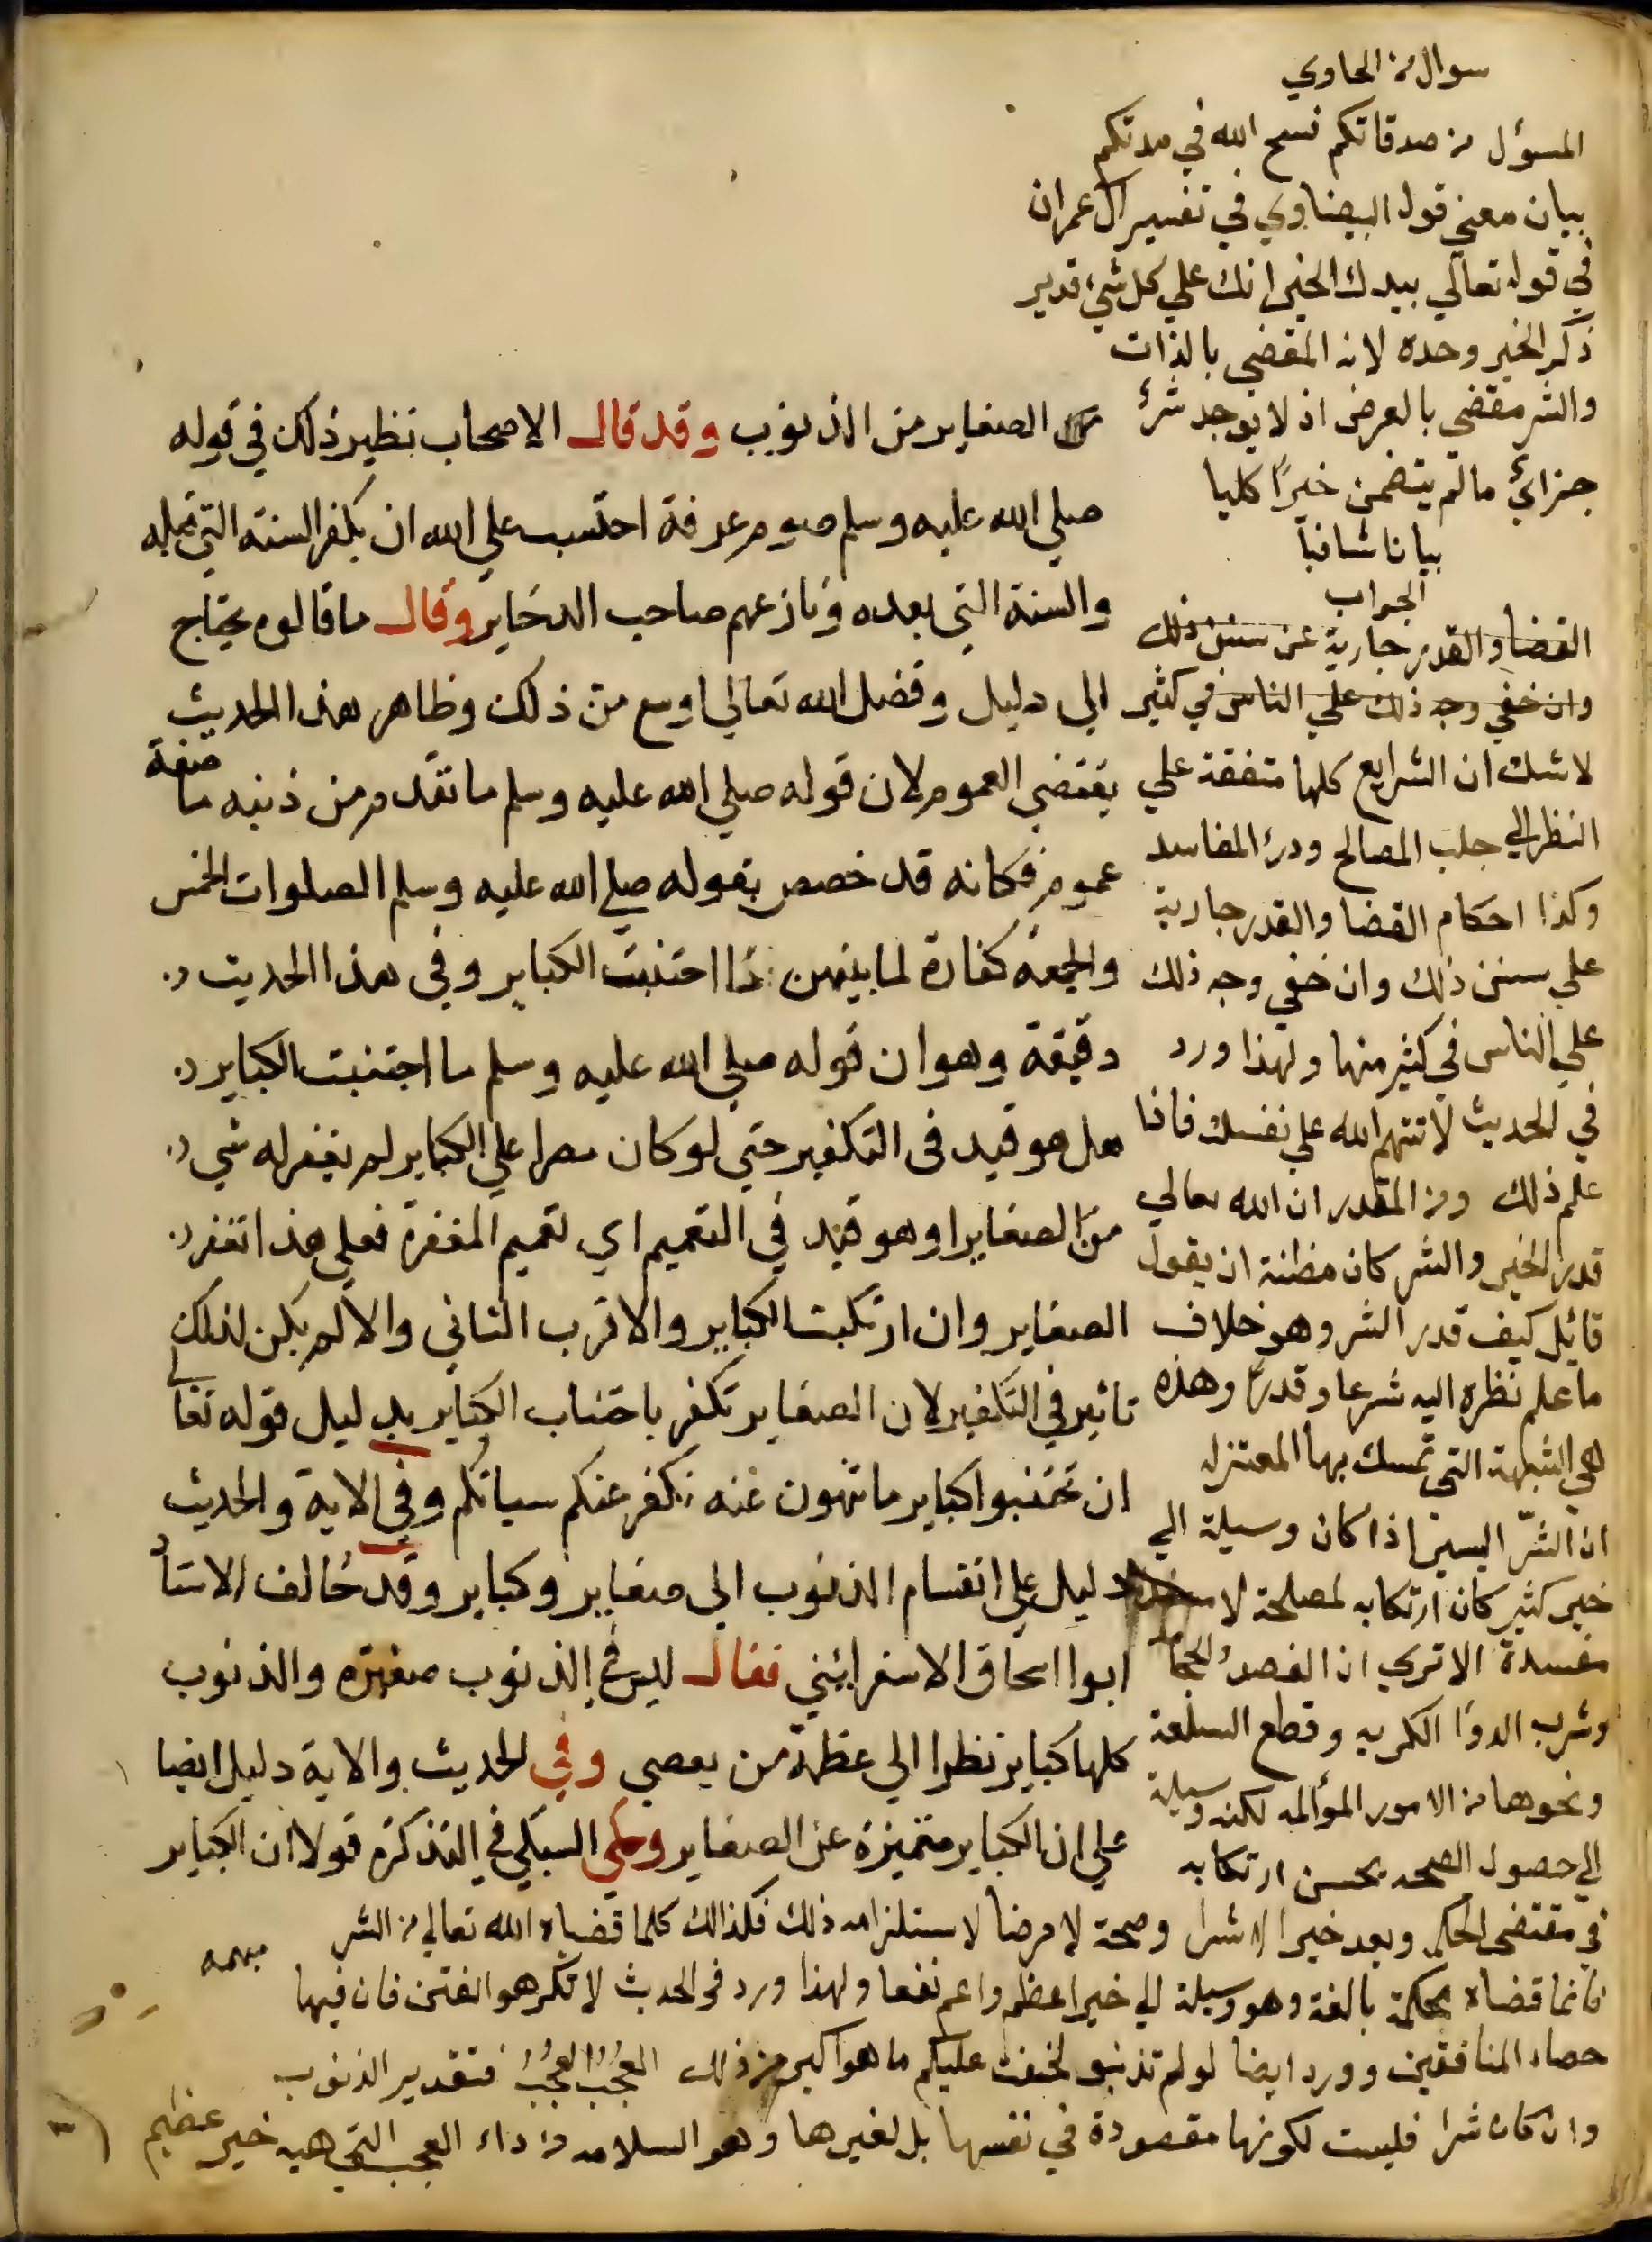 من الصغاير من الذنوب وقد قال الاصحاب نظير ذلك في قوله
صلي الله عليه وسلم صوم عرفة احتسب علي الله ان يكفر السنة التي قبله
والسنة التي بعده ونازعهم صاحب الدخاير وقال ما قالوه يحتاج
الي دليل وفضل الله تعالي اوسع من ذلك وظاهر هذا الحديث
يقتضي العموم لان قوله صلي الله عليه وسلم ما تقدم من ذنبه ما صفة
عموم فكانه قد خصص بقوله صلي الله عليه وسلم الصلوات الخمس
والجمعة كفارة لما بينهن اذا اجتنبت الكباير وفي هذا الحديث
دقيقة وهو ان قوله صلي الله عليه وسلم ما اجتنبت الكباير
هل هو قيد في التكفير حتي لو كان مصرا علي الكباير لم يغفر له شي
من الصغاير او هو قيد في التعميم اي تعميم المغفرة فعلي هذا تغفر
الصغاير وان ارتكبت الكباير والاقرب الثاني والا لم يكن لذلك
تاثير في التكفير لان الصغاير تكفر باجتناب الكباير بدليل قوله تعالي
ان تجتنبوا كباير ما تنهون عنه نكفر عنكم سياتكم وفي الاية والحديث
دليل علي انقسام الذنوب الي صغاير وكباير وقد خالف الاستاد
ابوا اسحاق الاسفرايني فقال ليس في الذنوب صغيرة والذنوب
كلها كباير نظرا الي عظمة من يعصي وفي الحديث والاية دليل ايضا
علي ان الكباير متميزة عن الصغاير وحكي السبكي في التذكرة قولا ان الكباير
سوال من الحاوي
المسؤل من صدقاتكم فسح الله في مدتكم
بيان معني قول البيضاوي في تفسير آل عمران
في قوله تعالي بيدك الخير انك علي كل شيء قدير
ذكر الخير وحده لانه المقضي بالذات
والشر مقضي بالعرض اذ لا يوجد شرء
جزائي ما لم يتضمن خيرًا كليا
بيانا شافيا
الجواب
القضا والقدر جارية عن سنن ذلك
وان خفي وجه ذلك علي الناس في كثير
لا شك ان الشرايع كلها متفقة علي
النظر الي جلب المصالح ودرء المفاسد
وكذا احكام القضا والقدر جارية
علي سنن ذلك وان خفي وجه ذلك
علي الناس في كثير منها ولهذا ورد
في الحديث لا تتهم الله علي نفسك فاذا
علم ذلك ومن المقدر ان الله تعالي
قدر الخير والشر كان مظنة ان يقول
قائل كيف قدر الشر وهو خلاف
ما علم نظره اليه شرعا وقدرًا وهذه
هي الشبهة التي تمسك بها المعتزله
ان الشرّ اليسير اذا كان وسيلة الي
خير كثير كان ارتكابه لمصلحة لا
مفسدة الا تري ان الفصد والحجامة
وشرب الدوا الكريه وقطع السلعة
ونحوها من الامور المؤلمه لكنه وسيلة
الي حصول الصحه يحسن ارتكابه
في مقتضي الحكمه ويعد خيرا لا شرا وصحة لا مرضا لاستلزامه ذلك فكذالك كلما قضاه الله تعالي من الشر
فانما قضاه بحكمة بالغة وهو وسيلة الي خير اعظم واعم نفعا ولهذا ورد في الحديث لا تكرهو الفتن فان فيها
حصاد المنافقين وورد ايضا لو لم تذنبو لخفت عليكم ما هو اكبر من ذلك العُجْبُ العُجْبُ فتقدير الذنوب
وان كان شرا فليست لكونها مقصودة في نفسها بل لغيرها وهو السلامه من داء العجب التي هيه خير عظيم